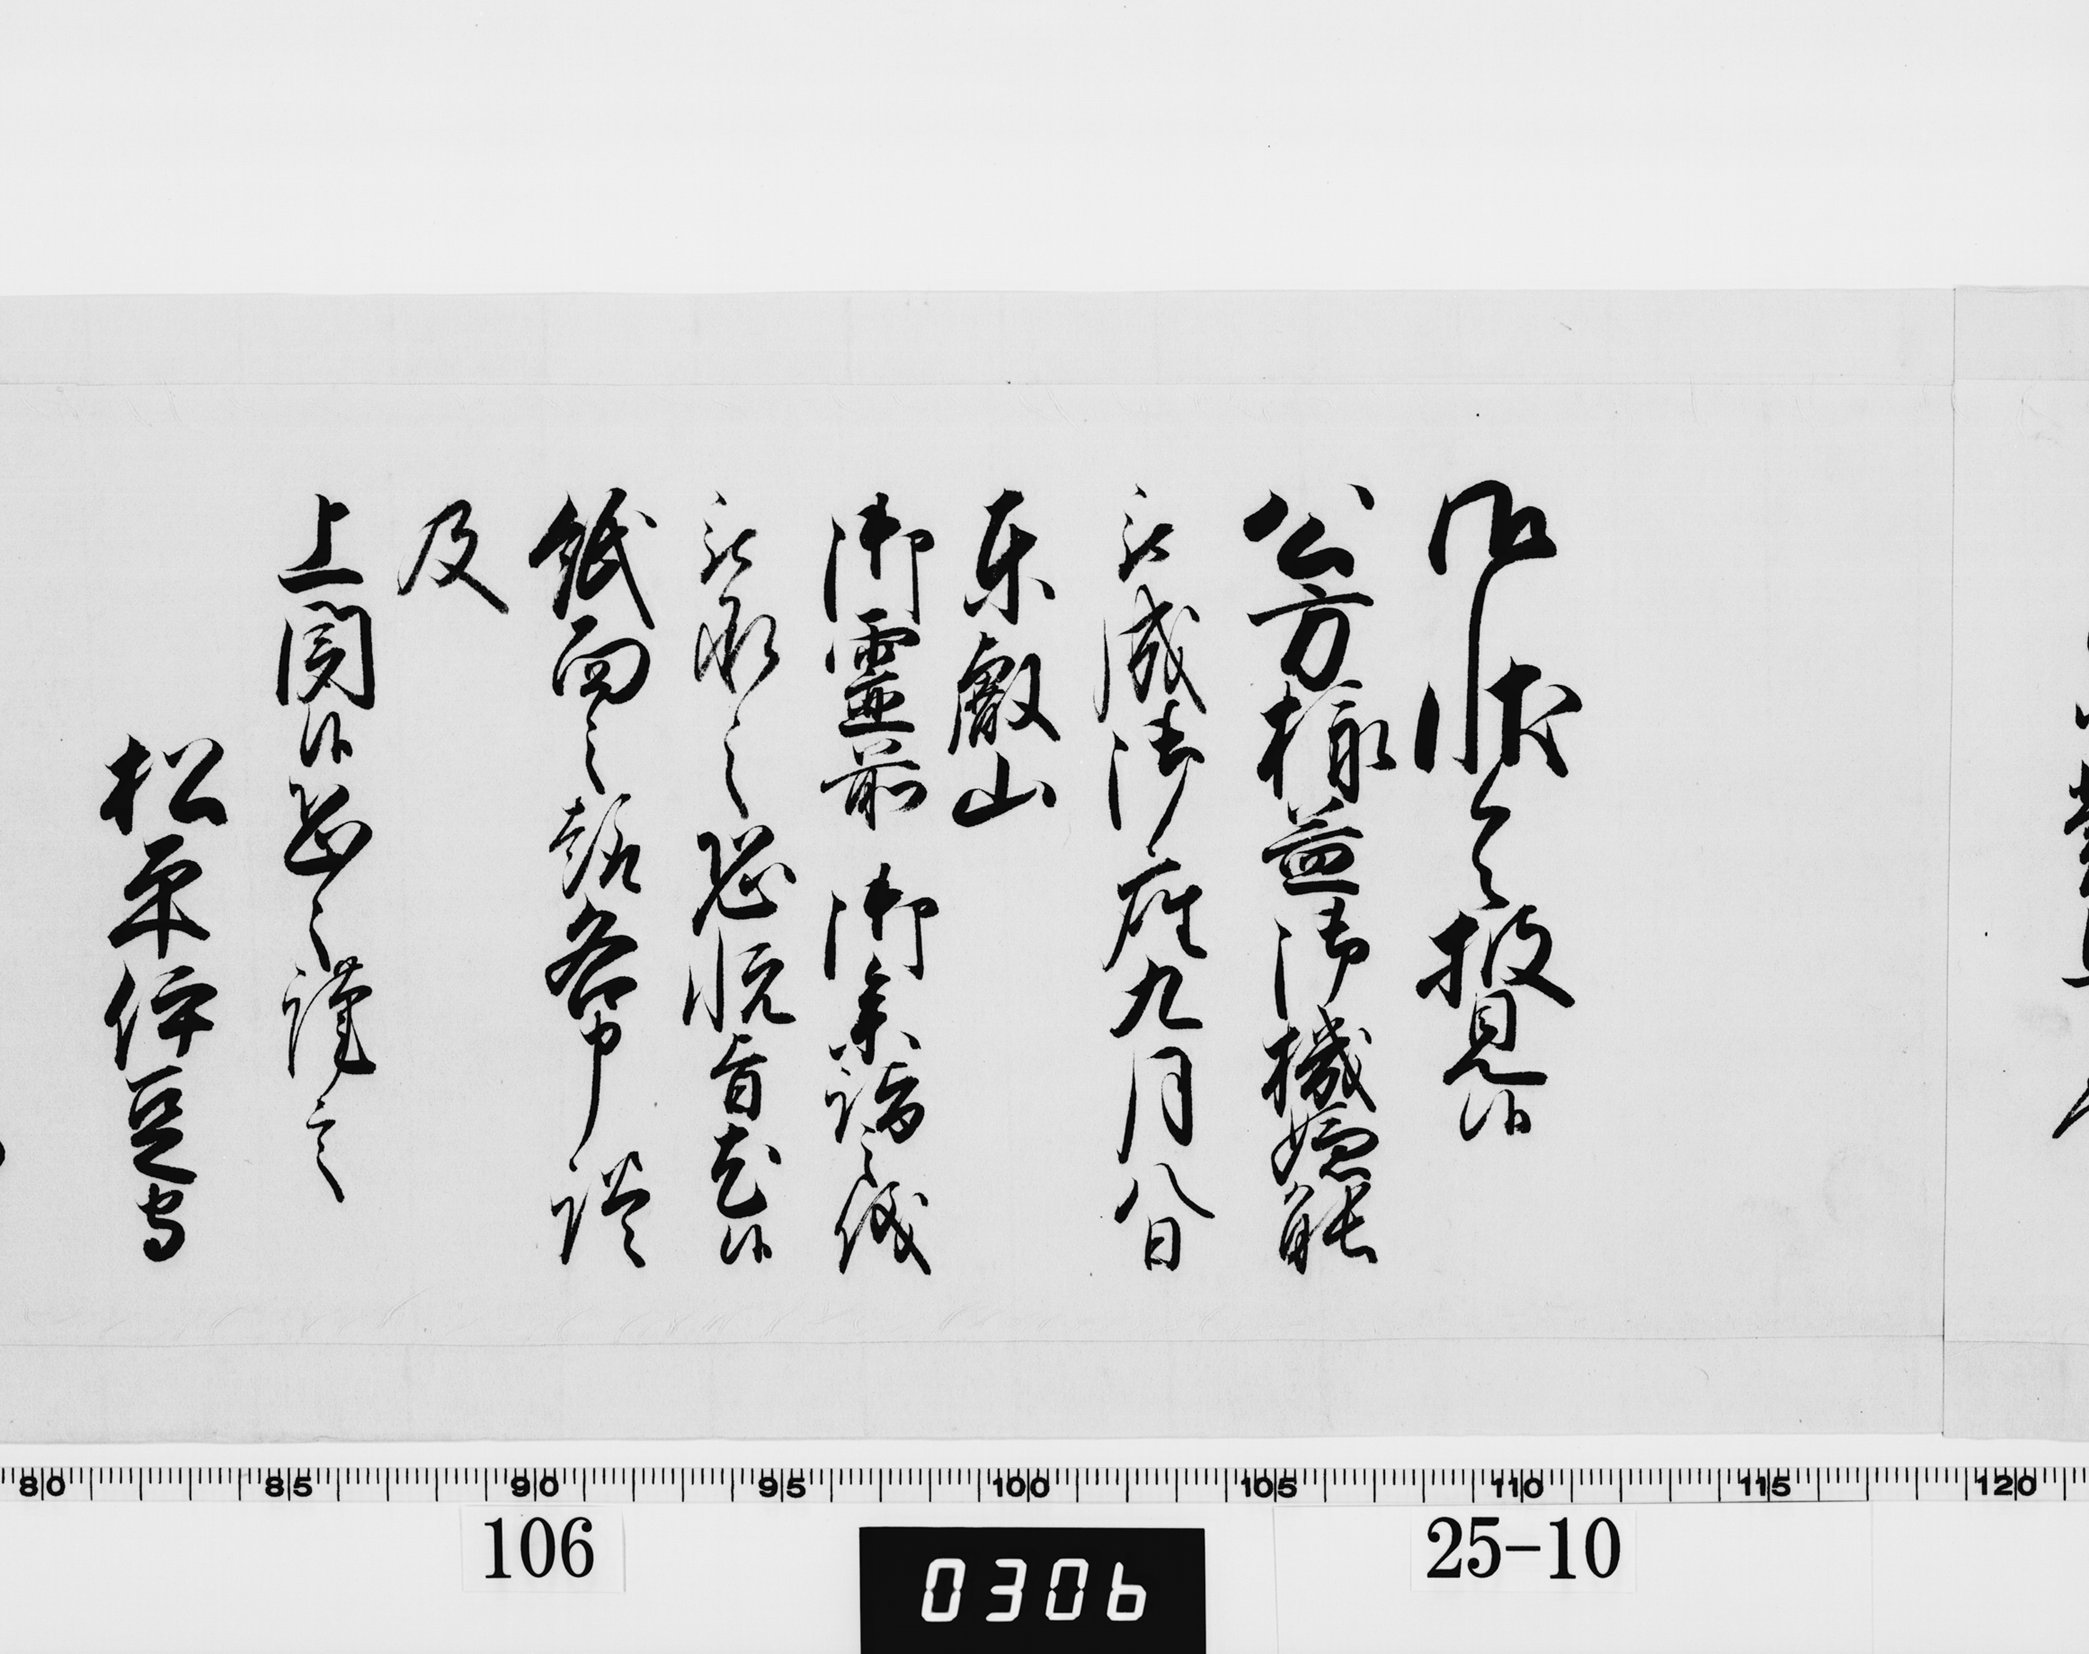 御状令披見候
公方様益御機嫌能
被成御座九月八日
東叡山
御霊前 御参詣之儀
被承之恐悦旨尤候
紙面之趣各申談
及
上聞候恐々謹言
松平伊豆守
80 85 90 95 100 105 110 115 120
106
25-10
0306